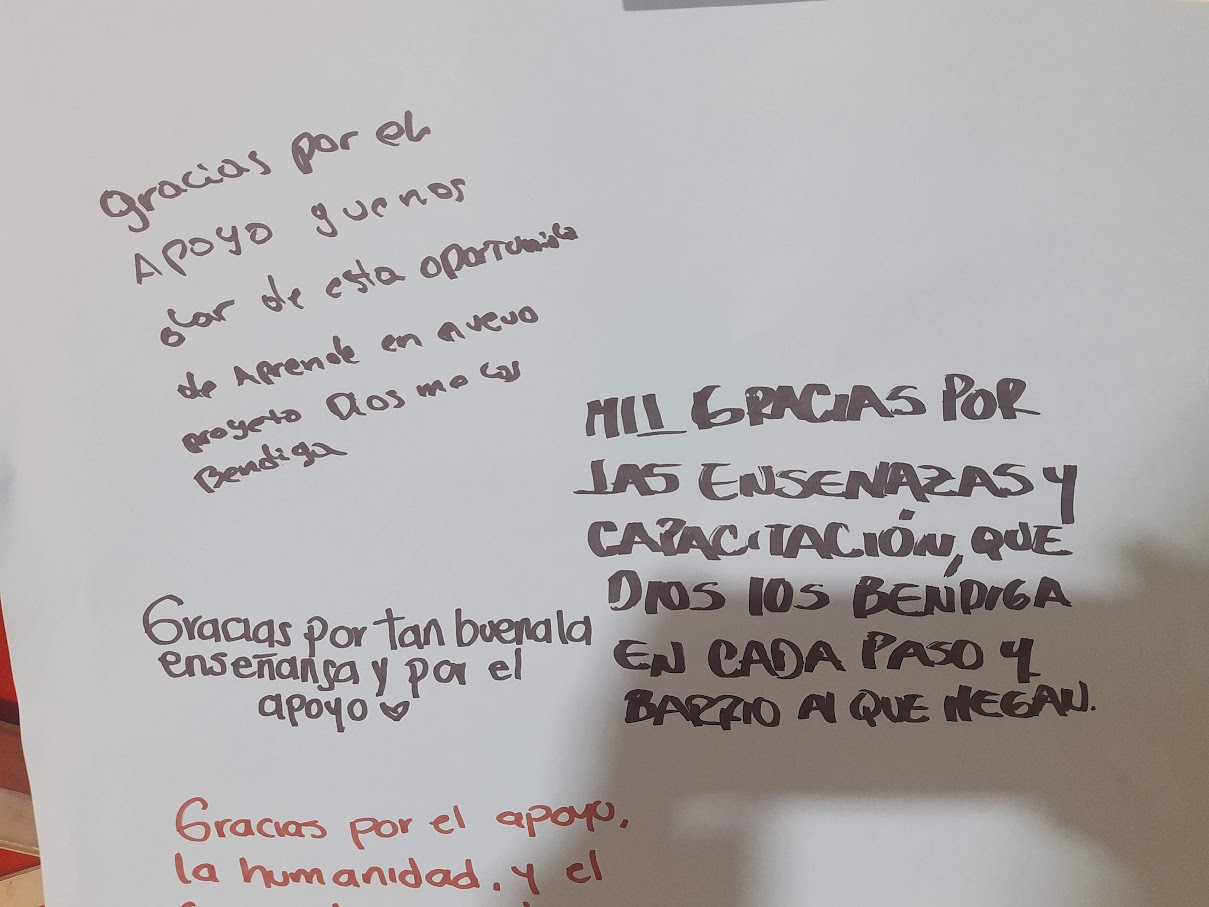 gracias por el
Apoyo que nos
dar de esta oportunida
de Aprende en nuevo
proyeto Dios me los
Bendiga
MIL GRACIAS POR
LAS ENSEÑAZAS Y
CAPACITACIÓN, QUE
DIOS LOS BENDIGA
EN CADA PASO Y
BARRIO AL QUE LLEGAN.
Gracias por tan buena la
enseñansa y por el
apoyo
Gracias por el apoyo,
la humanidad, y el